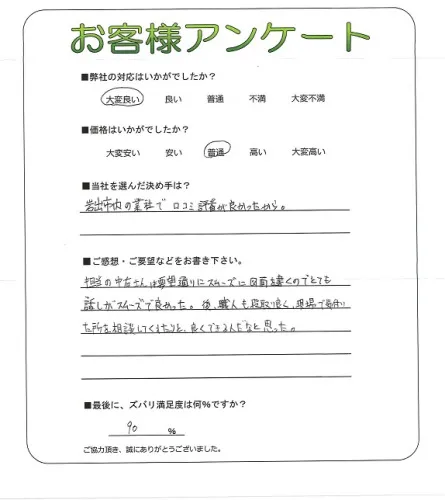 お客様アンケート
■弊社の対応はいかがでしたか?
大変良い 良い 普通 不満 大変不満
■価格はいかがでしたか?
大変安い 安い 普通 高い 大変高い
■当社を選んだ決め手は?
岩出市内の業社で 口コミ評価が良かったから。
■ご感想・ご要望などをお書き下さい。
担当の中古さんは要望通りにスムーズに図面を書くのでとても
話しがスムーズで良かった。後、職人も段取り良く、現場で
た所を相談してくれたりと、良くできるんだなと思った。
■最後に、ズバリ満足度は何%ですか?
90 %
ご協力頂き、誠にありがとうございました。